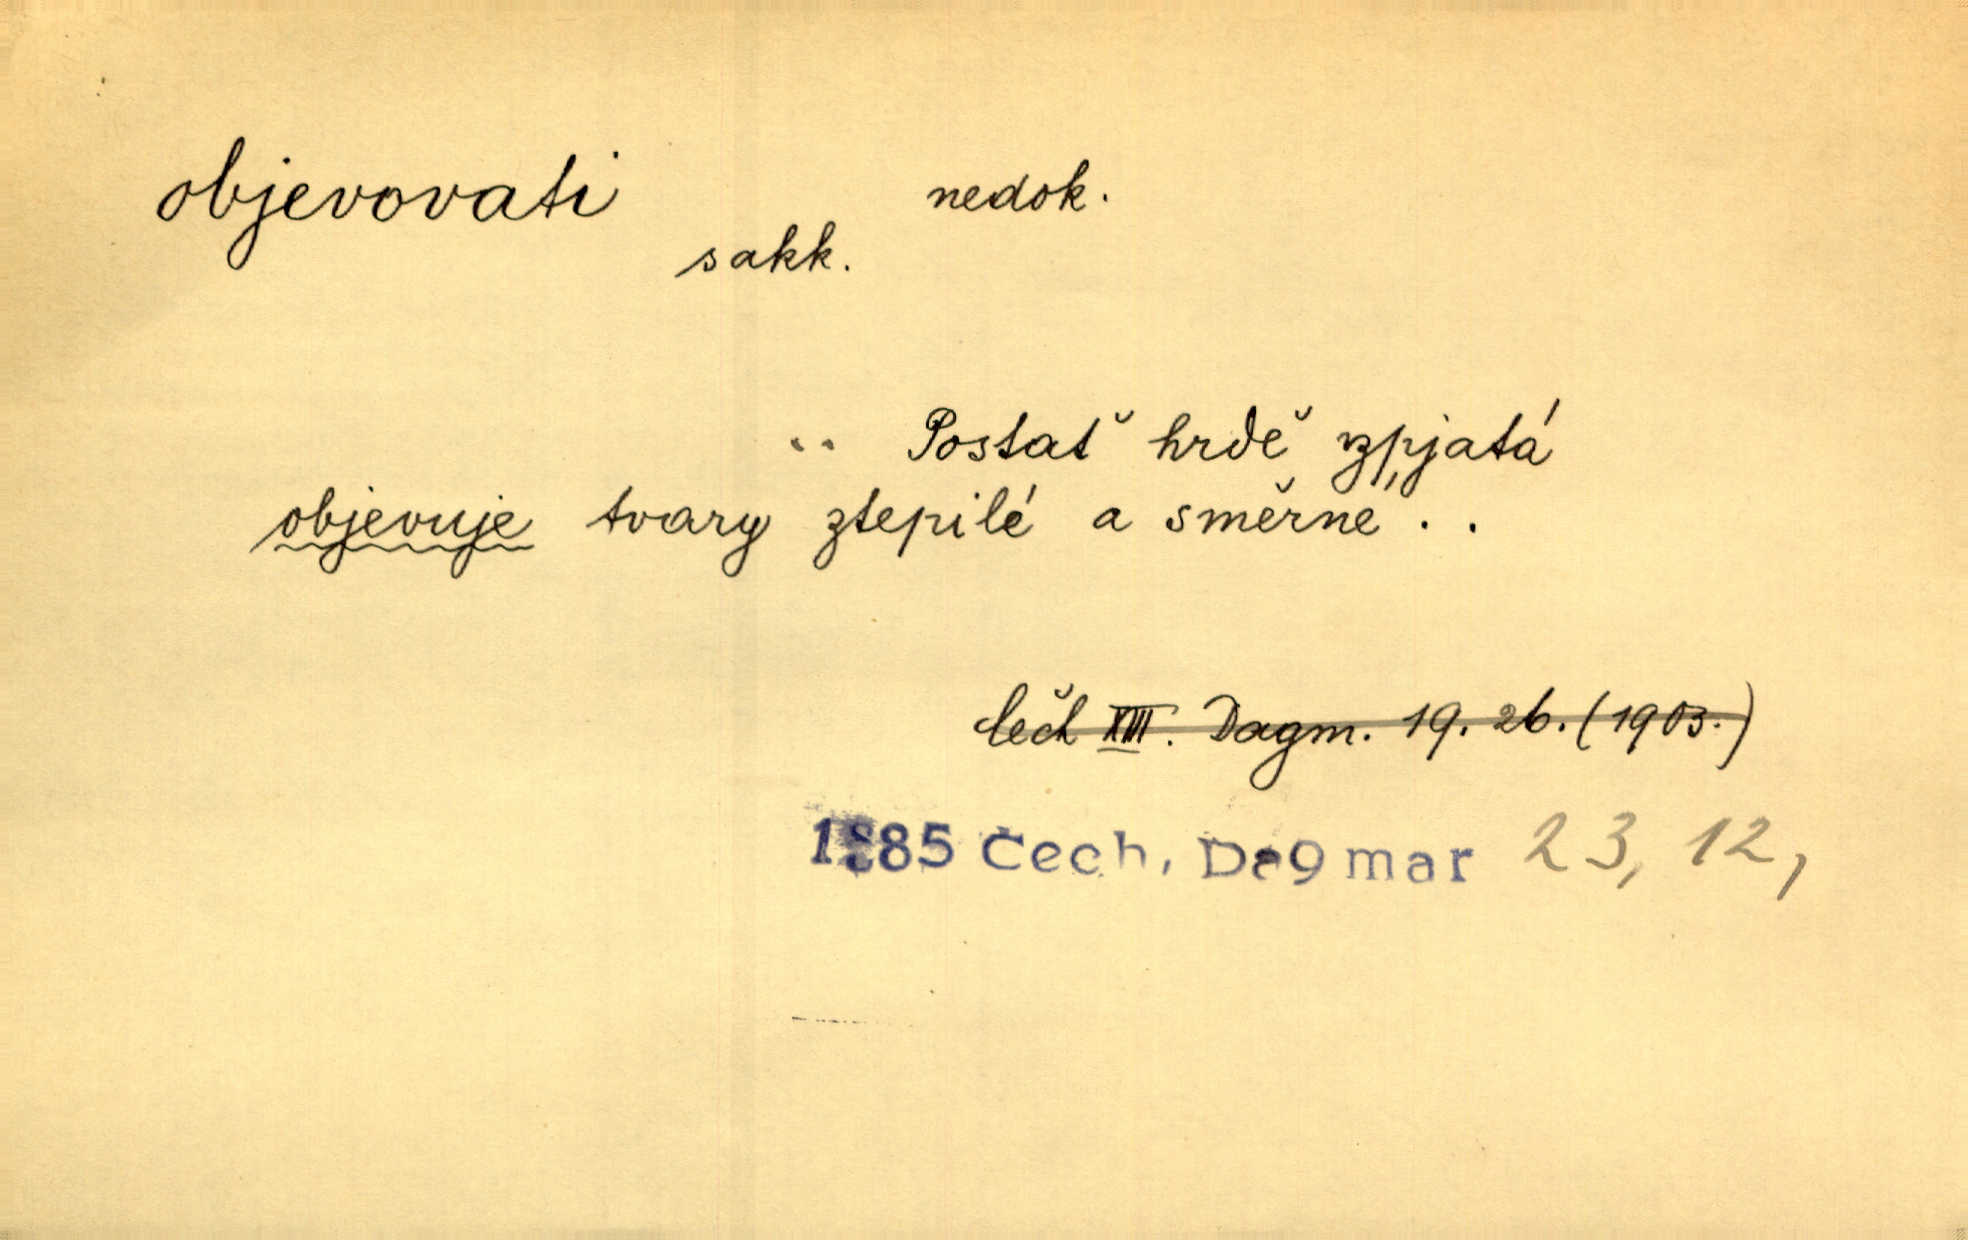 objevovati nedok.
sakk.
.. Postať hrdě vzpjatá
objevuje tvary ztepilé a směrné . .
Čech XIII. Dagm. 19. 26. (1903.)
1885 Čech, Dagmar 23, 12,